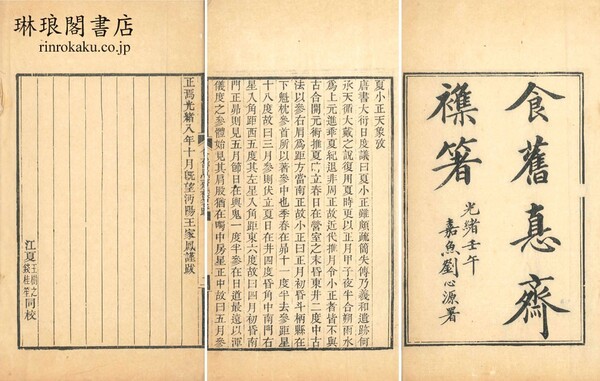 琳琅閣書店
rinrokaku.co.jp
食舊悳齋
襍箸
光緒壬午
嘉魚劉心源署
夏小正天象攷
唐書大衍日度議曰夏小正雖頗疏簡失傳乃羲和遺跡何
承天循大戴之說復用夏時更以正月甲子夜半合朔雨水
為上元進乖夏紀退非周正故近代推月令小正者皆不與
古合開元術推夏立春日在營室之末昏東井二度中古
法以參右肩為距方當南正故小正曰正月初昏斗柄縣在
下魁枕參首所以著參中也季春在昴十一度半去參距星
十八度故曰三月參則伏立夏日在井四度昏角中南門右
星入角距西五度其左星入角距東六度故曰四月初昏南
門正昴則見五月節日在輿鬼一度半參在日道最遠以渾
儀度之參體始見其肩股猶在濁中房星正中故曰五月參
正焉光緒八年十月既望沔陽王家鳳謹跋
江夏
桂笙
同校